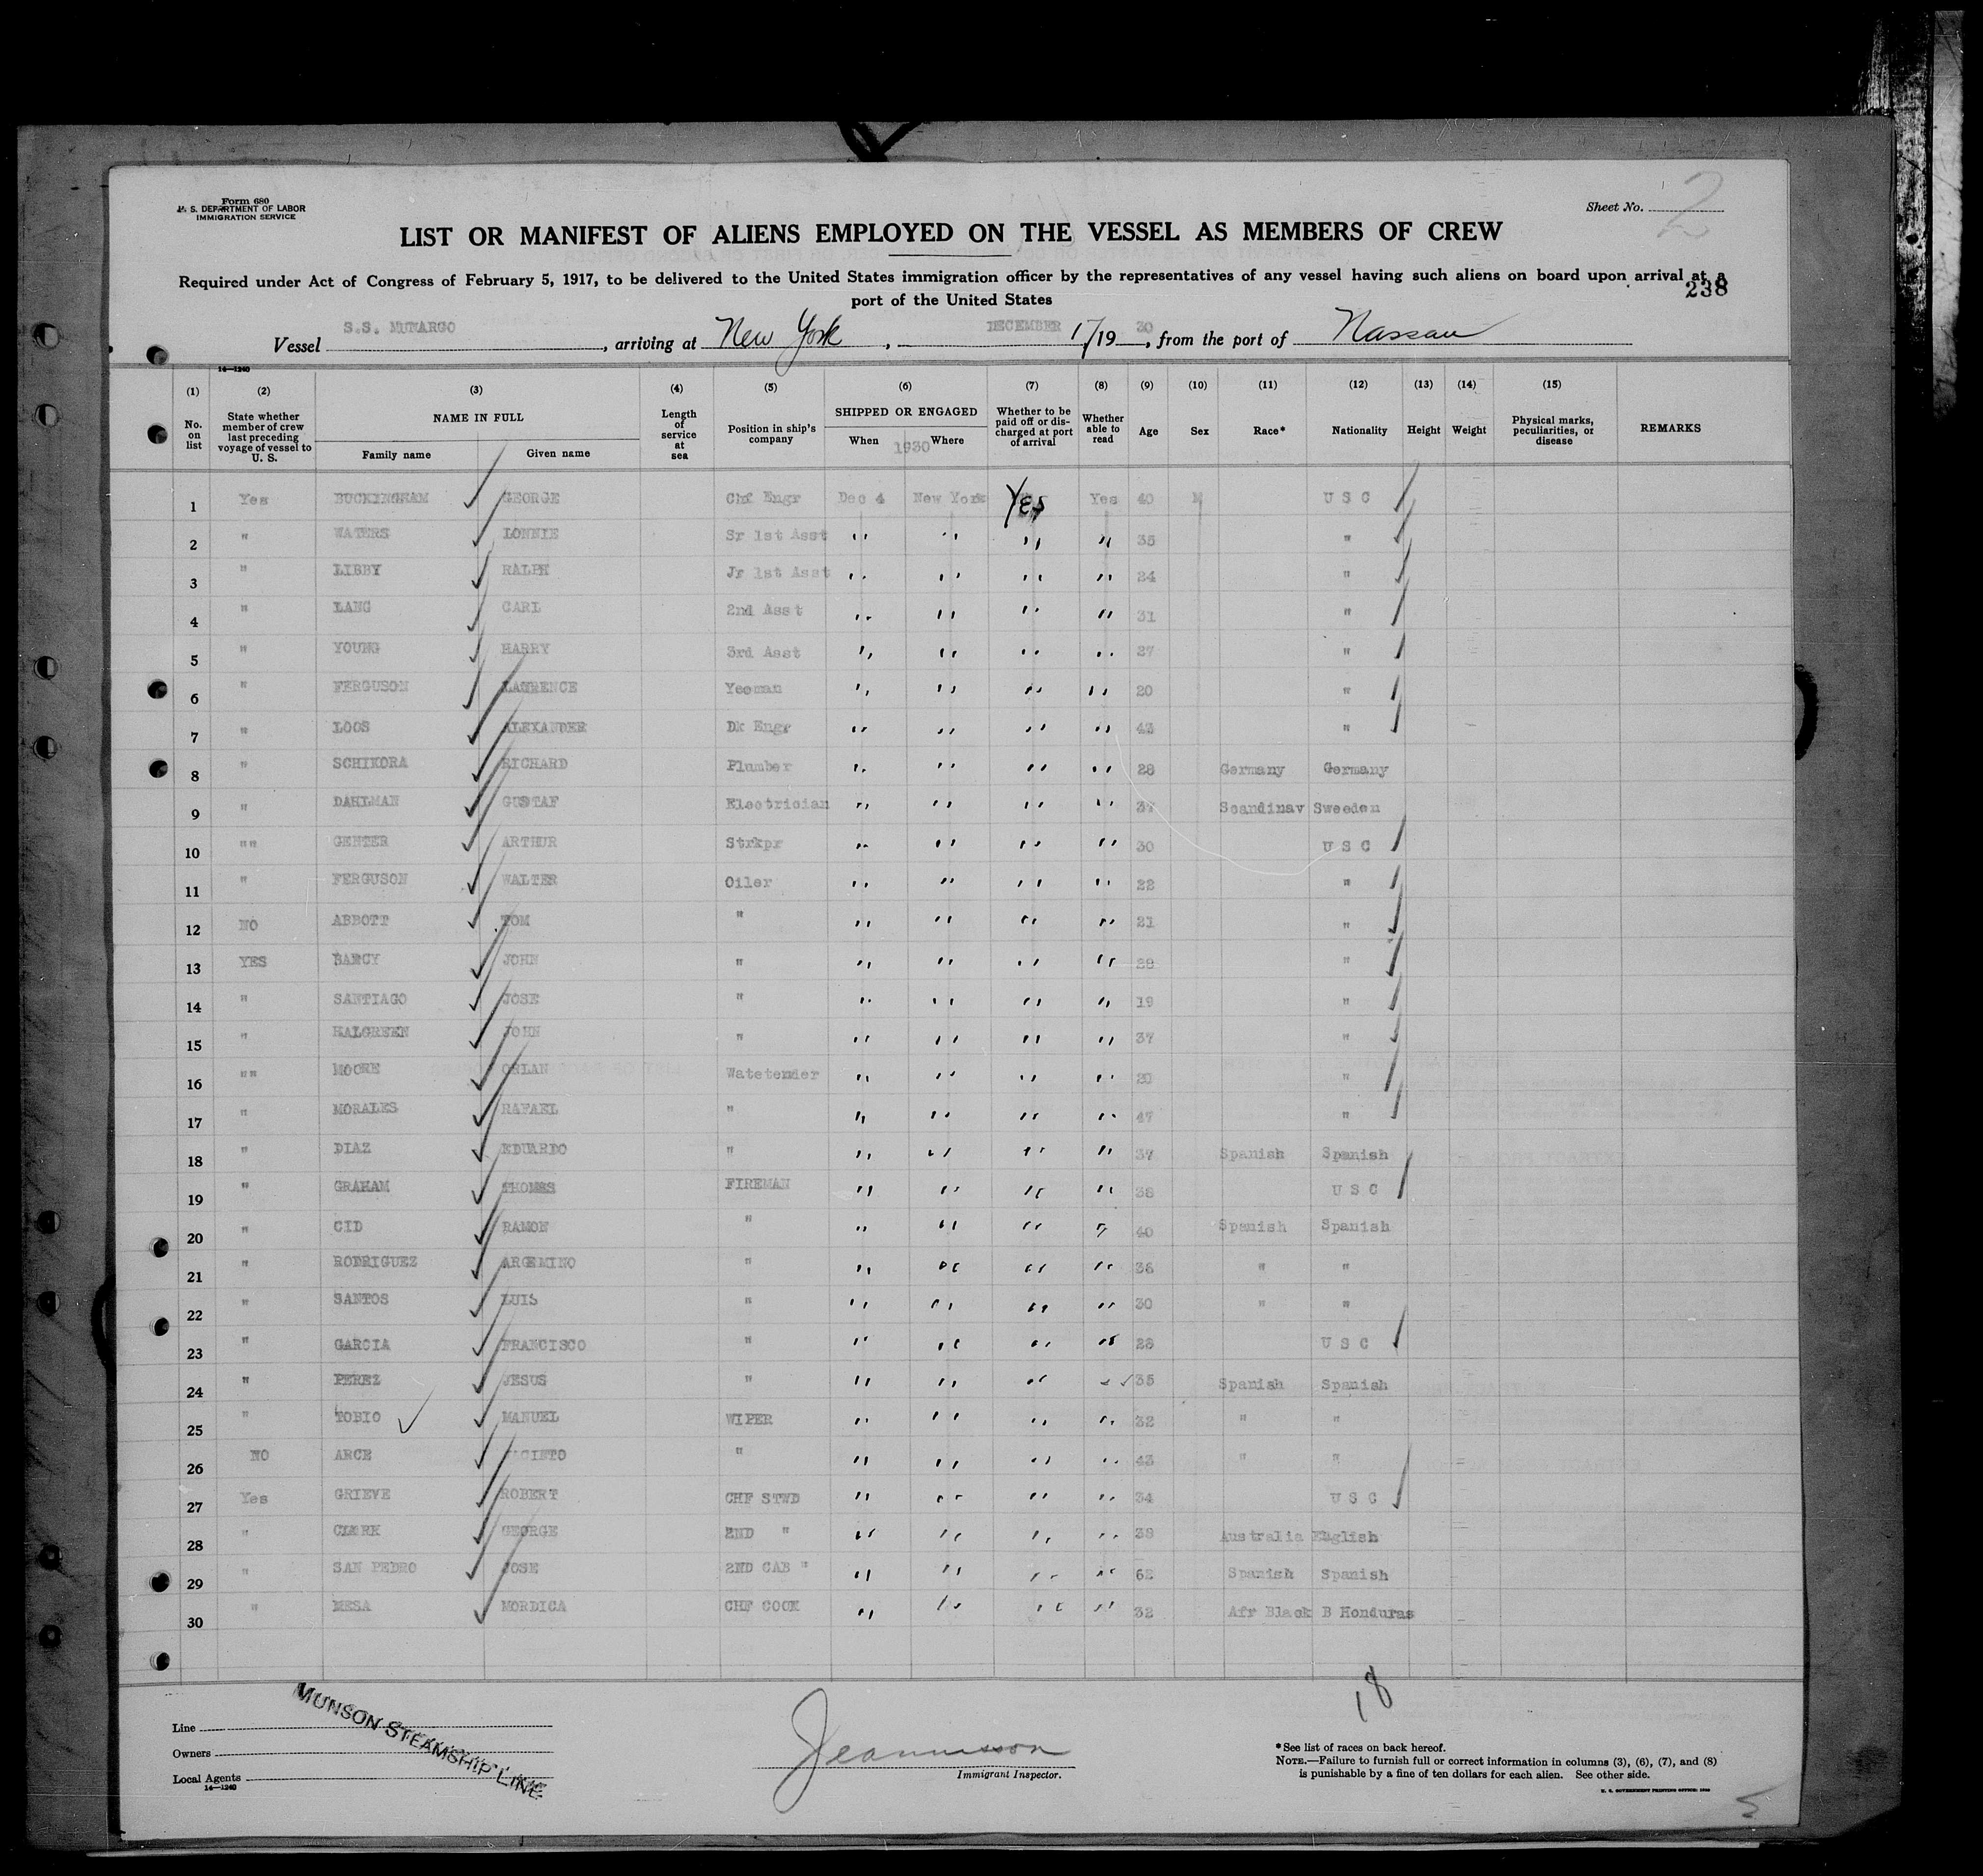 Form 680
U. S. DEPARTMENT OF LABOR
IMMIGRATION SERVICE
Sheet No. 2
LIST OR MANIFEST OF ALIENS EMPLOYED ON THE VESSEL AS MEMBERS OF CREW
Required under Act of Congress of February 5, 1917, to be delivered to the United States immigration officer by the representatives of any vessel having such aliens on board upon arrival at a
port of the United States
238
Vessel S.S. MUNARGO, arriving at New York, DECEMBER 17 1930, from the port of Nassau
14—1240
(1) (2) (3) (4) (5) (6) (7) (8) (9) (10) (11) (12) (13) (14) (15)
No. on list State whether member of crew last preceding voyage of vessel to U. S. NAME IN FULL Family name Given name Length of service at sea Position in ship's company SHIPPED OR ENGAGED When 1930 Where Whether to be paid off or discharged at port of arrival Whether able to read Age Sex Race* Nationality Height Weight Physical marks, peculiarities, or disease REMARKS
1 Yes BUCKINGHAM GEORGE Chf Engr Dec 4 New York Yes Yes 40 M U S C
2 " WATERS LONNIE Sr 1st Asst " " " " 35 "
3 " LIBBY RALPH Jr 1st Asst " " " " 24 "
4 " LANG CARL 2nd Asst " " " " 31 "
5 " YOUNG HARRY 3rd Asst " " " " 27 "
6 " FERGUSON LAURENCE Yeoman " " " " 20 "
7 " LOOS ALEXANDER Dk Engr " " " " 43 "
8 " SCHIKORA RICHARD Plumber " " " " 28 Germany Germany
9 " DAHLMAN GUSTAF Electrician " " " " 37 Scandinav Sweden
10 "" GENTER ARTHUR Strkpr " " " " 30 U S C
11 " FERGUSON WALTER Oiler " " " " 22 "
12 NO ABBOTT TOM " " " " " 21 "
13 YES BANCY JOHN " " " " " 28 "
14 " SANTIAGO JOSE " " " " " 19 "
15 " HALGREEN JOHN " " " " " 37 "
16 "" MOORE ORLAN Watetender " " " " "
17 " MORALES RAFAEL " " " " " 47 "
18 " DIAZ EDUARDO " " " " " 37 Spanish Spanish
19 " GRAHAM THOMAS FIREMAN " " " " 38 U S C
20 " CID RAMON " " " " " 40 Spanish Spanish
21 " RODRIGUEZ ARGEMINO " " " " " 36 " "
22 " SANTOS LUIS " " " " " 30 " "
23 " GARCIA FRANCISCO " " " " " 28 U S C
24 " PEREZ JESUS " " " " " 35 Spanish Spanish
25 " TOBIO MANUEL WIPER " " " " 32 " "
26 NO ARCE " " " " " 43 " "
27 Yes GRIEVE ROBERT CHF STWD " " " " 34 U S C
28 " CLARK GEORGE 2ND " " " " " 38 Australia English
29 " SAN PEDRO JOSE 2ND CAB " " " " " 62 Spanish Spanish
30 " MESA MORDICA CHF COOK " " " " 32 Afr Black B Honduras
18
Line
Owners
Local Agents
14—1240
MUNSON STEAMSHIP LINE
Immigrant Inspector.
*See list of races on back hereof.
NOTE.—Failure to furnish full or correct information in columns (3), (6), (7), and (8)
is punishable by a fine of ten dollars for each alien. See other side.